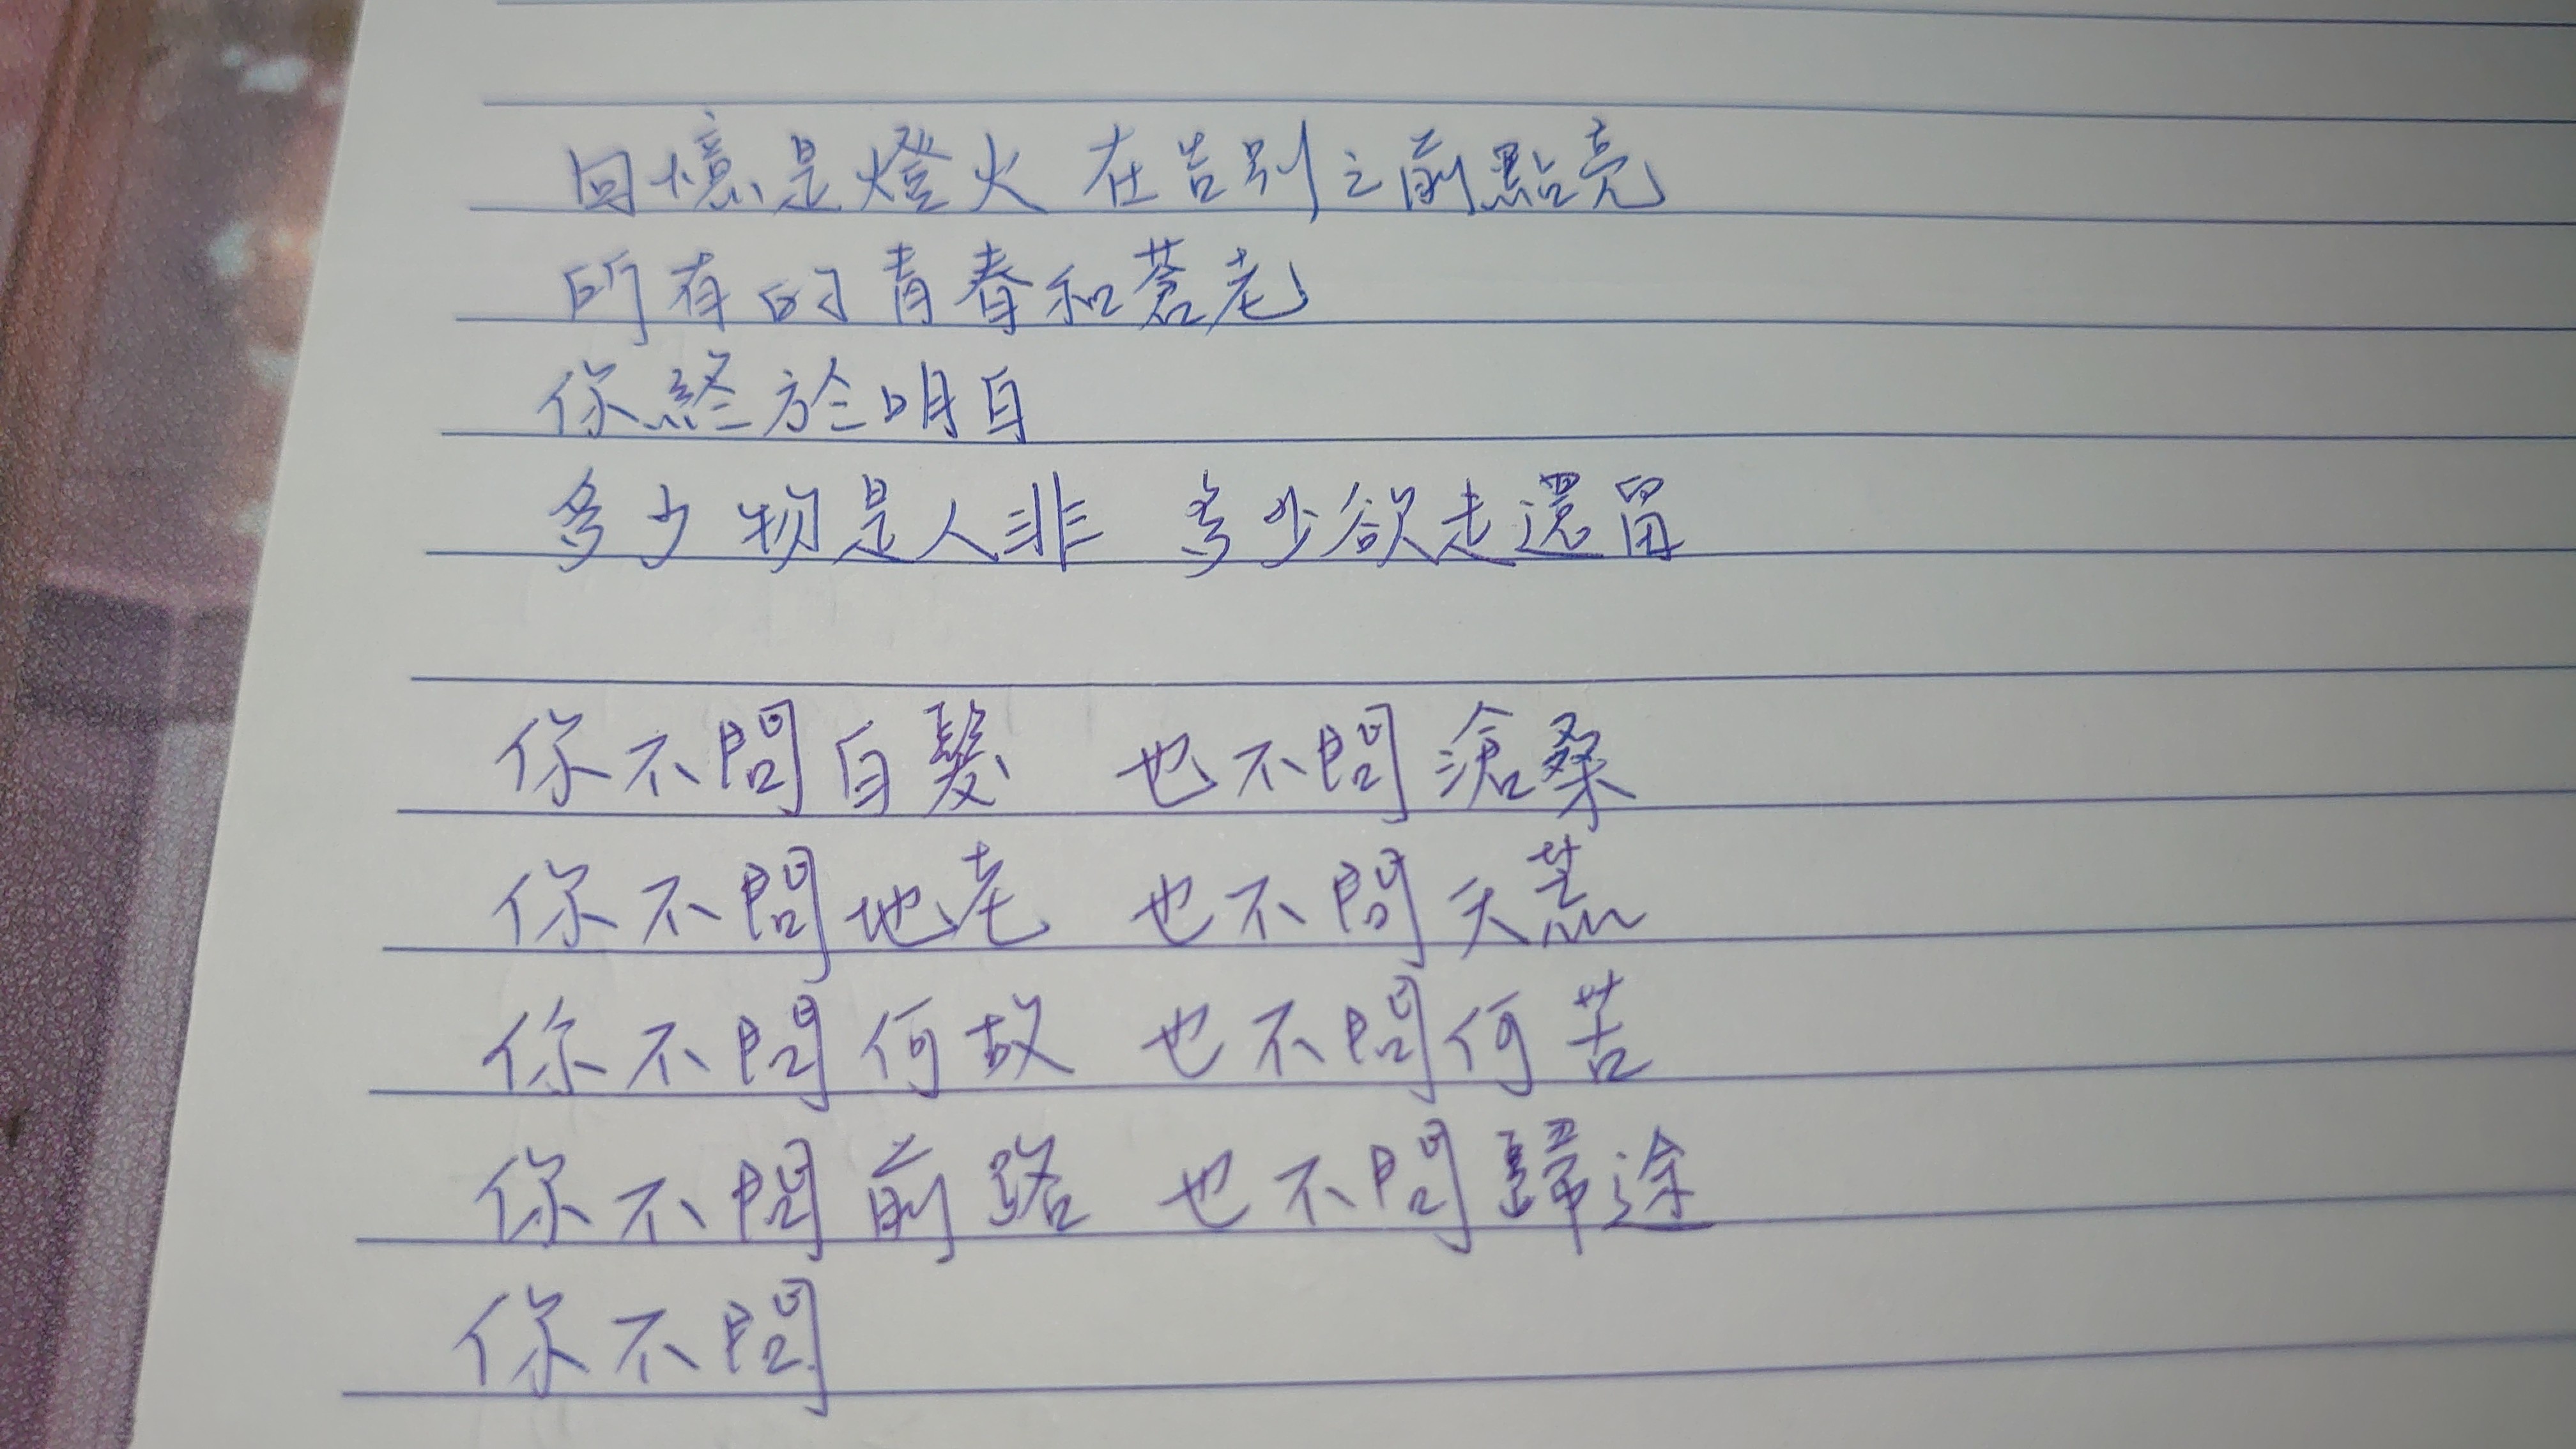 回憶是燈火 在告別之前點亮
所有的青春和蒼老
你終於明白
多少物是人非 多少欲走還留
你不問白髮 也不問滄桑
你不問地老 也不問天荒
你不問何故 也不問何苦
你不問前路 也不問歸途
你不問